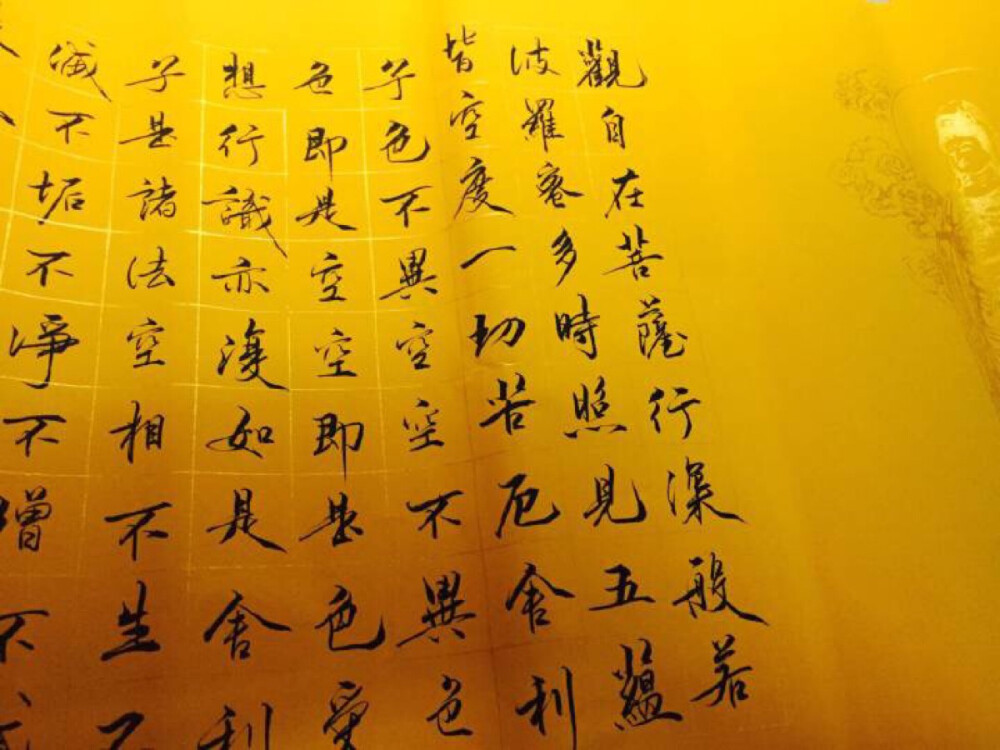 觀自在菩薩行深般若
波羅蜜多時照見五蘊
皆空度一切苦厄舍利
子色不異空空不異色
色即是空空即是色受
想行識亦復如是舍利
子是諸法空相不生不
滅不垢不淨不增不